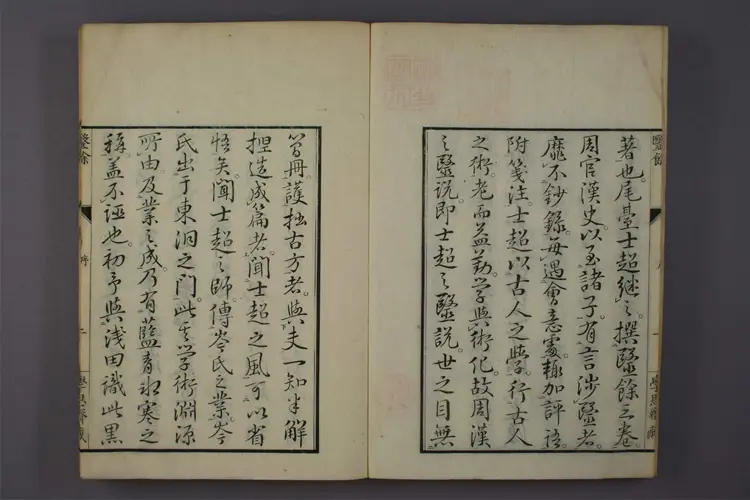 著也。尾臺士超継之。撰醫餘三卷。
周官漢史。以至諸子。有言涉醫者。
靡不鈔錄。每遇會意處。輙加評語。
附箋注。士超以古人之學。行古人
之術。老而益勤。學與術化。故周漢
之醫說。即士超之醫說。世之目無
醫餘
序
一
曾冊。護拙古方者。與夫一知半解
捏造成篇者。聞士超之風。可以省
悟矣。聞士超之師。傳岑氏之業。岑
氏出于東洞之門。此其學術淵源
所由。及業之成。乃有藍青氷寒之
稱。蓋不誣也。初予與淺田識此黑
醫餘
序
二